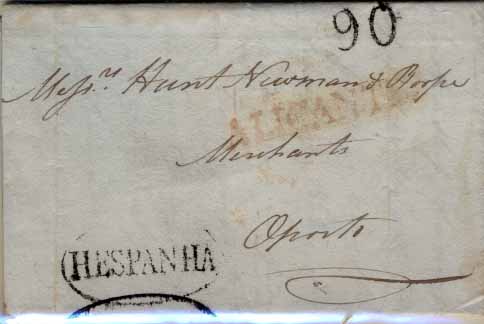 90
Messrs Hunt Newman & Roope
ALICANTE
Merchants
Oporto
HESPANHA